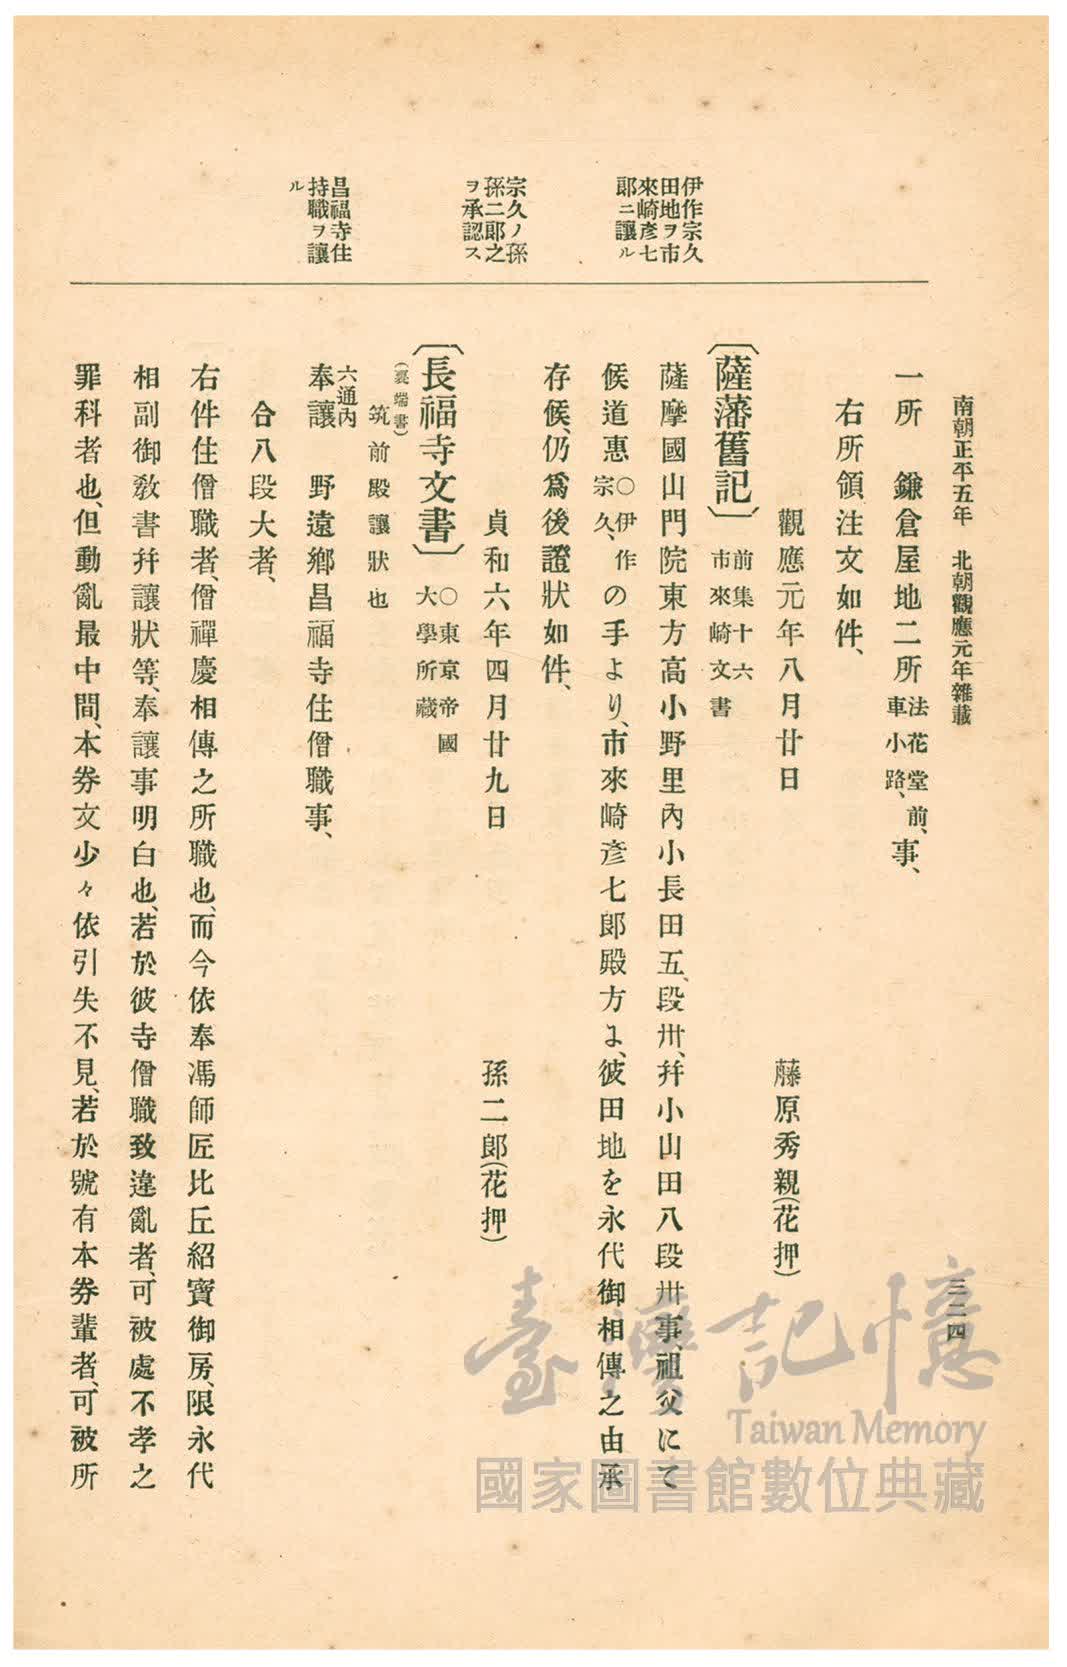 南朝正平五年　北朝觀應元年雜載
三二四
伊作宗久
田地ヲ市
來崎彥七
郞ニ讓ル
宗久ノ孫
孫二郞之
ヲ承認ス
昌福寺住
持職ヲ讓
ル
一所　鎌倉屋地二所法花堂前、車小路、事、
右所領注文如件、
觀應元年八月廿日　藤原秀親(花押)
〔薩藩舊記〕前集十六
市來崎文書
薩摩國山門院東方高小野里內小長田五、段卅、幷小山田八段卅事、祖父にて
候道惠○伊作宗久、の手より、市來崎彥七郞殿方よ、彼田地を永代御相傳之由承
存候、仍爲後證狀如件、
貞和六年四月廿九日　孫二郞(花押)
〔長福寺文書〕○東京帝國
大學所藏
(裏端書)
筑前殿讓狀也
六通內
奉讓　野遠鄕昌福寺住僧職事、
合八段大者、
右件住僧職者、僧禪慶相傳之所職也、而今依奉馮師匠比丘紹寶御房、限永代
相副御敎書幷讓狀等、奉讓事明白也、若於彼寺僧職致違亂者、可被處不孝之
罪科者也、但動亂最中間、本券文少々依引失不見、若於號有本券輩者、可被所
臺灣記憶
Taiwan Memory
國家圖書館數位典藏